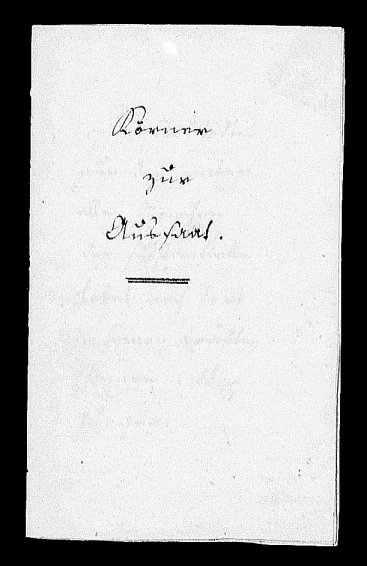 Körner
zur
Aussaat.